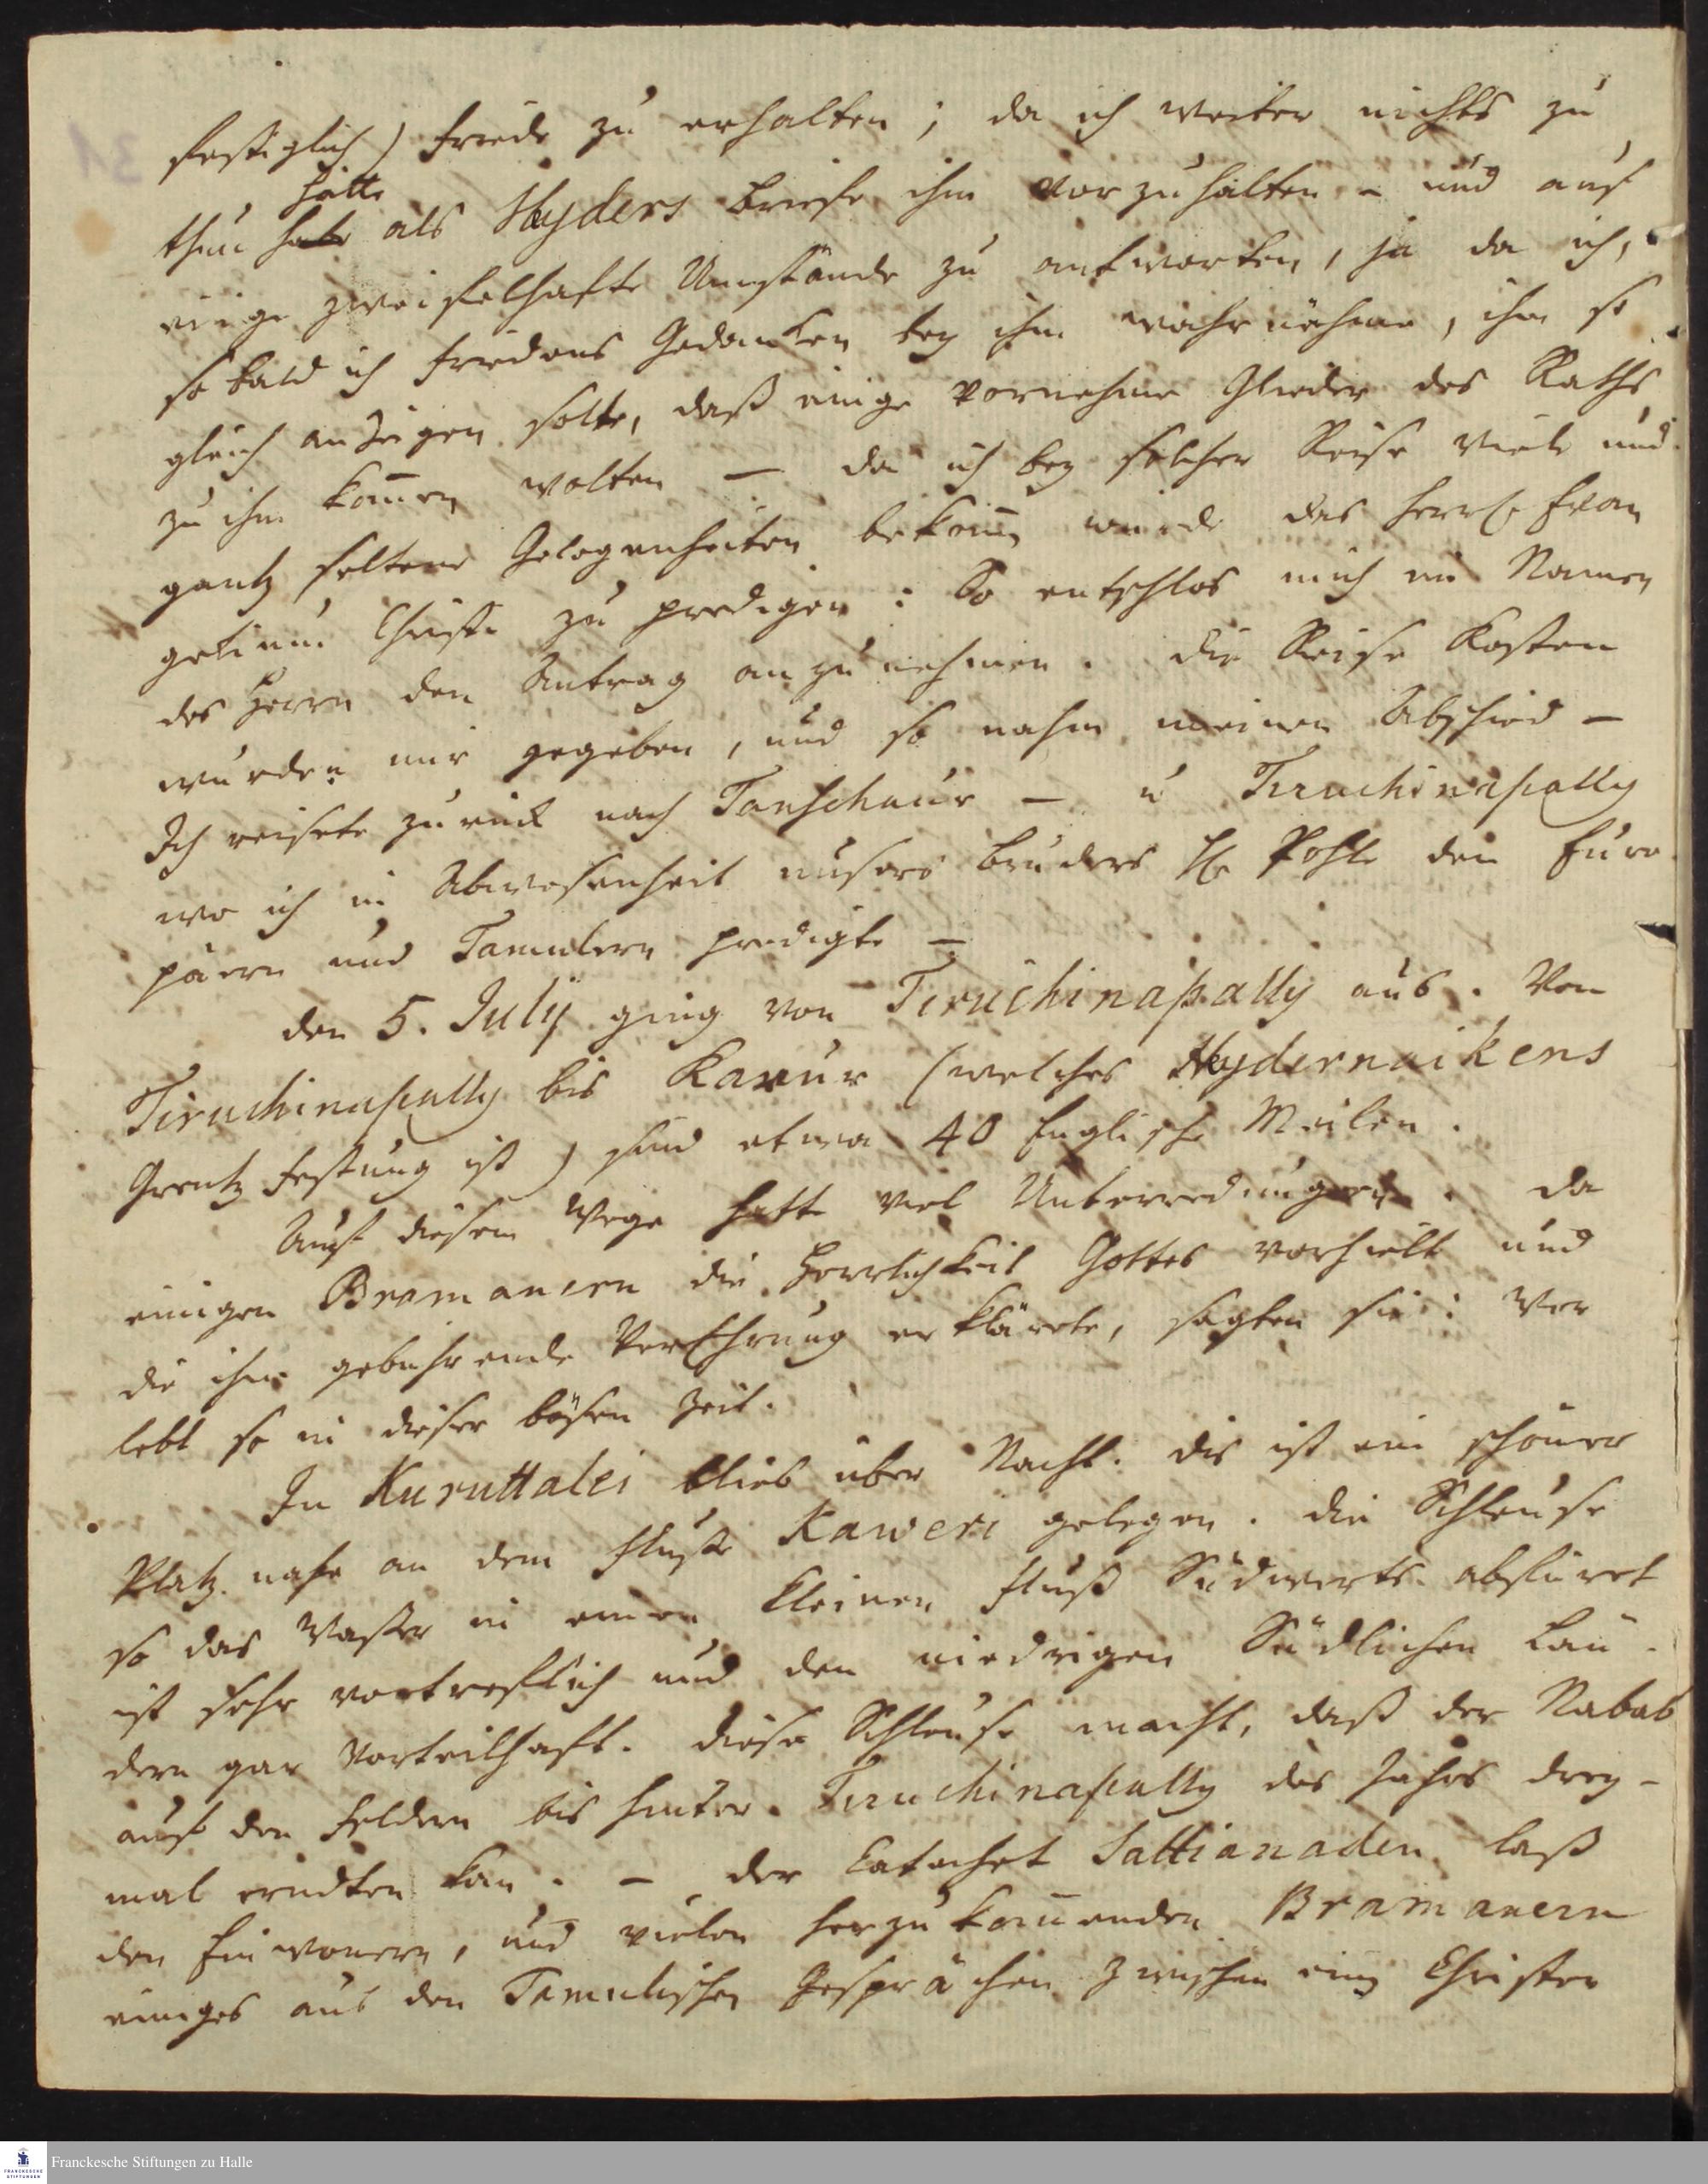 festiglich) Friede zu erhalten; da ich weiter nichts zu
hätte
thun habe als Hyders Briefe ihm vorzuhalten - und auf
einige zweifelhafte Umstände zu antworten, ja da ich,
so bald ich Friedens Gedanken bey ihm wahrnähme, ihm so
gleich anzeigen solte, daß einige vornehme Glieder des Raths
zu ihm kom̄en wolten — da ich bey solcher Reise viele und
gantz seltene Gelegenheiten bekom̄en würde das herrl. Evan
gelium Christi zu predigen: So entschlos mich im Namen
des Herrn den Antrag anzunehmen. die Reise Kosten
wurden mir gegeben, und so nahm meinen Abschied —
Ich reisete zurück nach Tanschaur — u Tiruchinapally
wo ich in Abwesenheit unsers Bruders H. Pohle den Euro
päern und Tamulern predigte —
den 5. July ging von Tiruchinapally aus. Von
Tiruchinapally bis Karur (welches Hydernaikens
Grentz Festung ist) sind etwa 40 Englische Meilen.
Auf diesem Wege hatte viel Unterredungen. da
einigen Bramanern die Herrlichkeit Gottes vorhielt und
die ihm gebuhrende Verehrung erklärete, sagten sie: Wer
lebt so in dieser bösen Zeit.
In Kuruttalei blieb über Nacht. dis ist ein schöner
Platz nahe an dem Fluße Kaweri gelegen. die Schleuse
so das Waßer in einen kleinen Fluß Südwerts abfüret
ist sehr vortreflich und den niedrigen Südlichen Län-
dern gar vorteilhaft. diese Schleuse macht, daß der Nabab
auf den Feldern bis hinter Tiruchinapally des Jahrs drey-
mal erndten kan. — der Catechet Sattianaden laß
den Einwonern, und vielen herzukom̄enden Bramanern
einiges aus den Tamulischen Gesprächen zwischen eim̄ Christen
Franckesche Stiftungen zu Halle